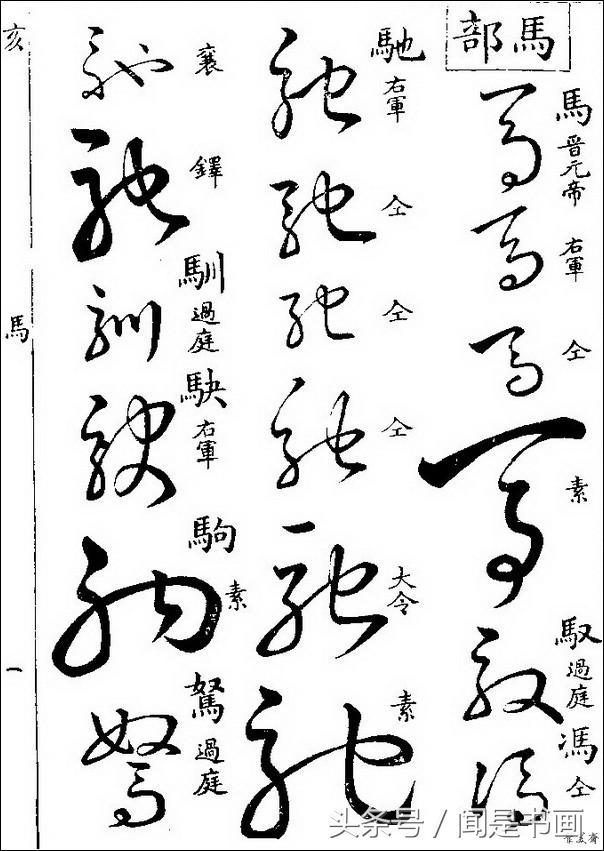 馬部
馬 晋元帝
右軍
仝
素
馭 過庭
馮 仝
馳 右軍
仝
仝
仝
大令
素
襄
鐸
馴 過庭
駃 右軍
駒 素
駑 過庭
亥
馬
一
头条号 / 闻是书画